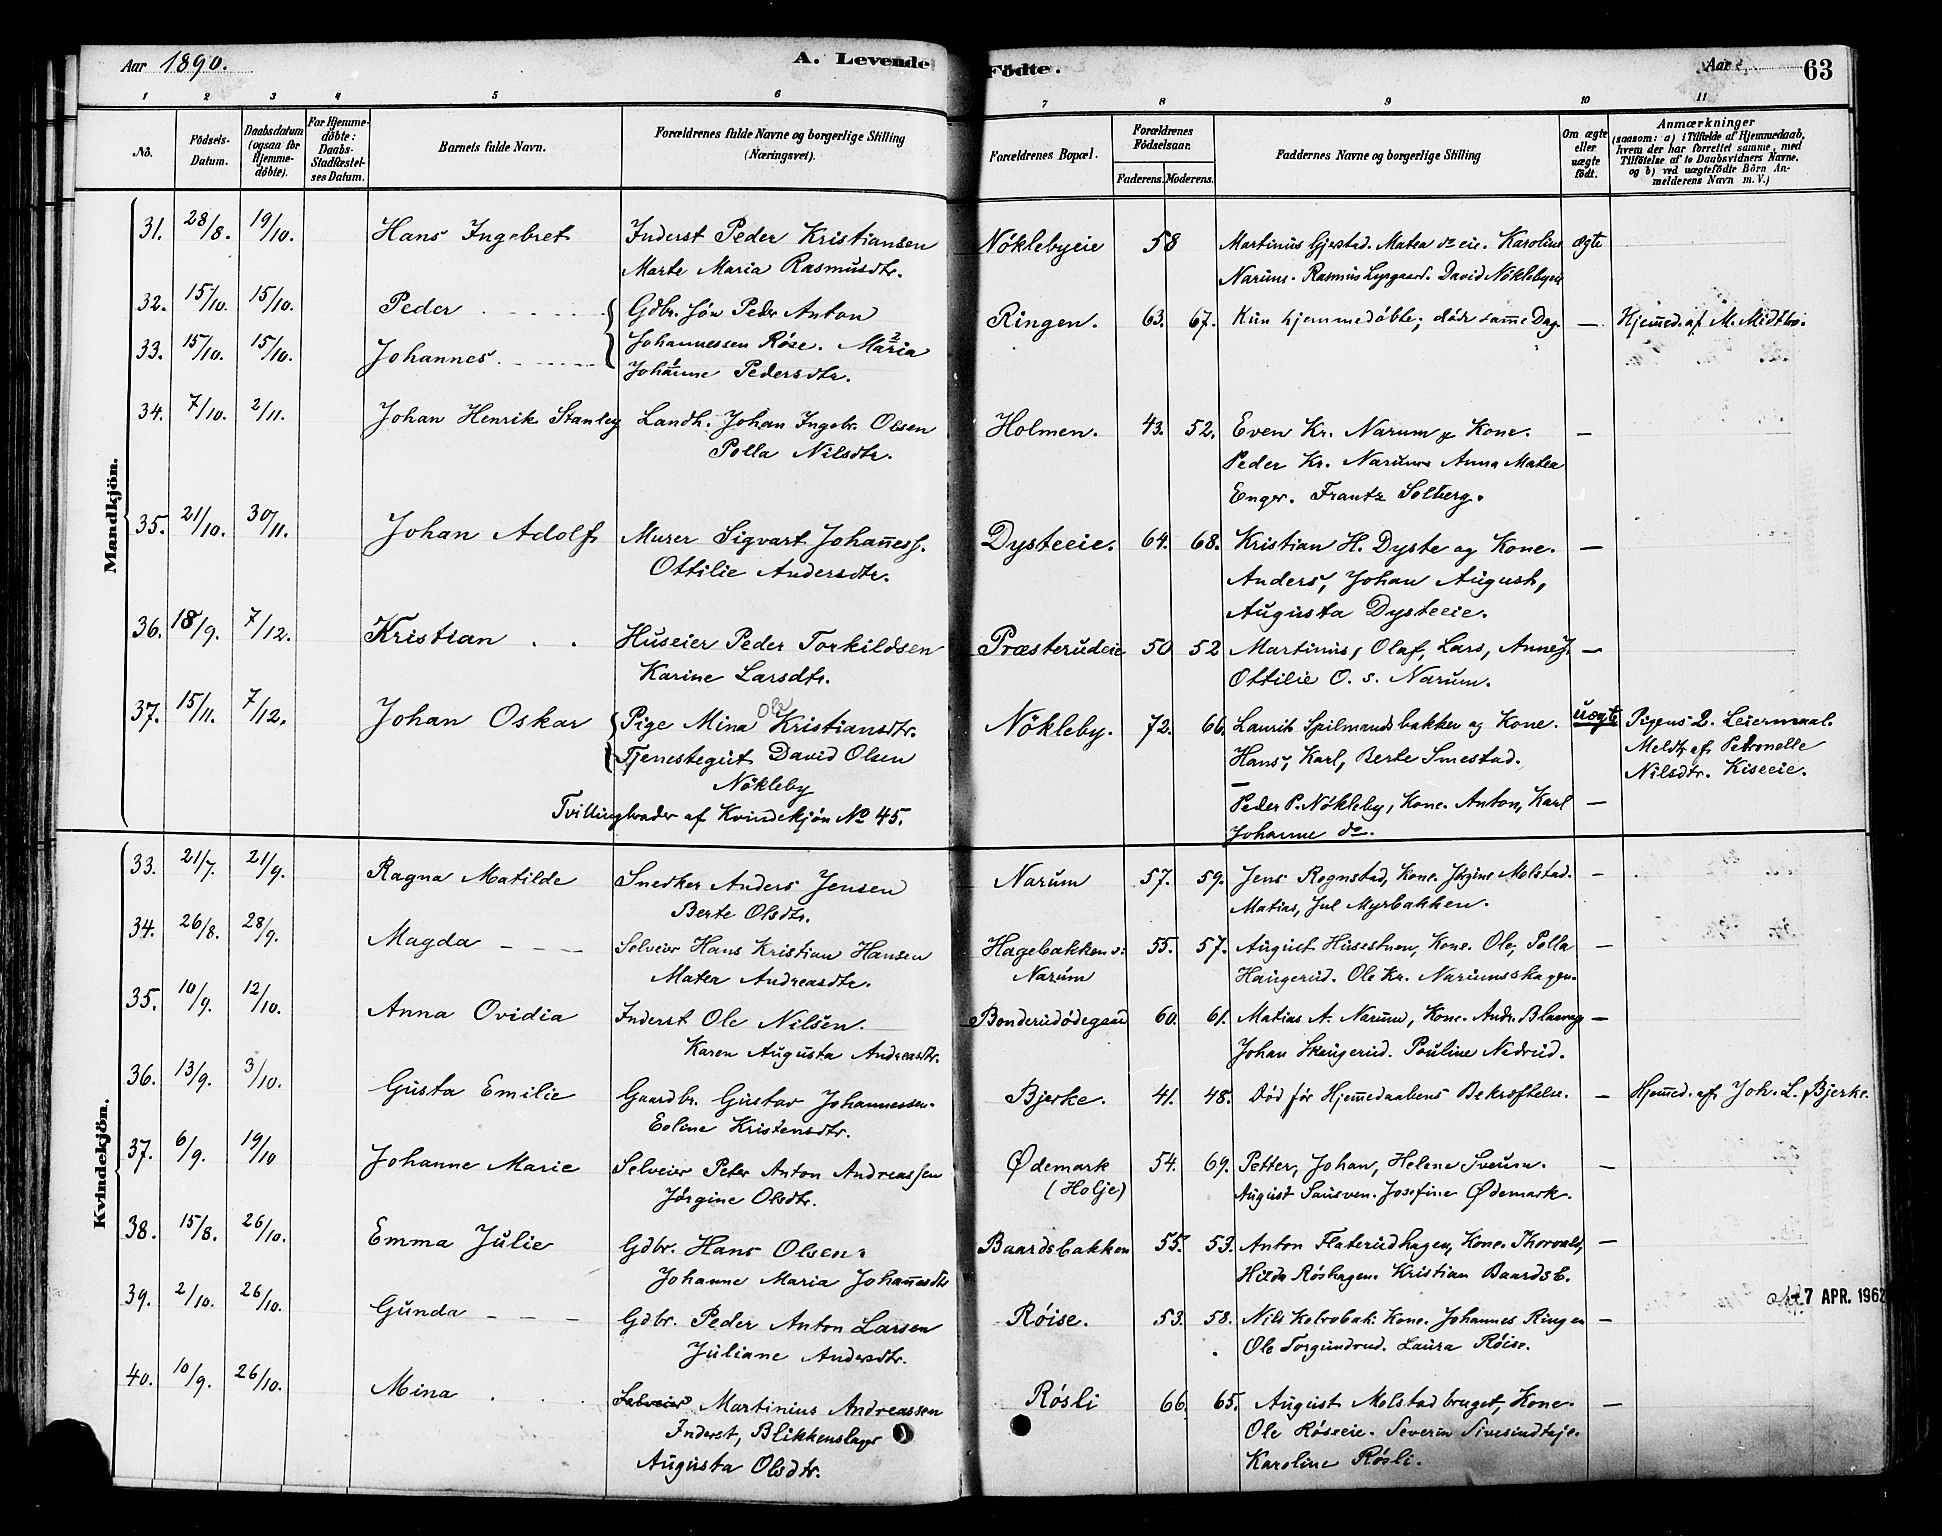 Aar 1890.
A. Levende Födte.
Aar
63
1 2 3 4 5 6 7 8 9 10 11
No.
Födsels-Datum.
Daabsdatum (ogsaa for Hjemme-döbte).
For Hjemme-döbte: Daabs-Stadfæstel-ses Datum.
Barnets fulde Navn.
Forældrenes fulde Navne og borgerlige Stilling (Næringsvei).
Forældrenes Bopæl.
Forældrenes Födselsaar.
Faderens. Moderens.
Faddernes Navne og borgerlige Stilling
Om ægte eller uægte födt.
Anmærkninger
(saasom: a) i Tilfælde af Hjemmedaab, hvem der har forrettet samme, med Tilföielse af to Daabsvidners Navne, og b) ved uægtefödte Börn An-melderens Navn m. V.)
Mandkjön.
31. 28/8. 19/10. Hans Ingebret Inderst Peder Kristiansen Nöklebyeie 58 Martinus Gjestad. Matea do eie. Karoline ægte
Marte Maria Rasmusdtr. Narum. Rasmus Lysgaard. David Nöklebyeie
32. 15/10. 15/10. Peder Gdbr. Jön Peder Anton Ringen. 63. 67. Kun hjemmedøbte; döde samme Dag. — Hjemed. af M. Midtbo.
33. 15/10. 15/10. Johannes Johannessen Røse. Maria
Johanne Pedersdtr.
34. 7/10. 2/11. Johan Henrik Stanley Landh. Johan Ingebr. Olsen Holmen. 43. 52. Even Kr. Narum & Kone. —
Polla Nilsdtr. Peder Kr. Narum Anna Matea
Enger. Frantz Solberg.
35. 21/10. 30/11. Johan Adolf Murer Sigvart Johaness. Dysteeie. 64. 68. Kristian H. Dyste og Kone. —
Ottilie Andersdtr. Anders, Johan August,
Augusta Dysteeie.
36. 18/9. 7/12. Kristian Huseier Peder Torkildsen Præsterudeie 50 52 Martinus, Olaf, Lars, Anne J. —
Karine Larsdtr. Ottilie O. s. Narum.
37. 15/11. 7/12. Johan Oskar Pige Mina Ols Kristiansdtr. Nökleby. 72. 66. Laurits Spilmandsbakken og Kone. uægte Pigens 2. Leiermaal.
Tjenestegut David Olsen Hans, Karl, Berte Smestad. Meldt af Petronelle
Nökleby Nilsdtr. Kiseeie.
Tvillingbroder af Kvindekjön No 45. Peder P. Nökleby, Kone. Anton, Karl —
Johanne do.
Kvindekjön.
33. 21/7. 21/9. Ragna Matilde Snedker Anders Jensen Narum 57. 59. Jens Rognstad, Kone. Jørgine Molstad. —
Berte Olsdtr. Matias, Jul Myrbakken.
34. 26/8. 28/9. Magda Selveier Hans Kristian Hansen Hagebakken v: 55. 57. August Husestuen, Kone. Ole, Polla —
Matea Andreasdtr. Narum Haugerud. Ole Kr. Narumshagen.
35. 10/9. 12/10. Anna Ovidia Inderst Ole Nilsen. Bonderudödegaard 60. 61. Matias A. Narum, Kone. Andr. Blaavarp —
Karen Augusta Andreasdtr. Johan Skaugerud. Pauline Nedrud.
36. 13/9. 3/10. Gusta Emilie Gaardbr. Gustav Johannessen. Bjerke. 41. 48. Död før Hjemedaabens Bekræftelse. — Hjemed. af Joh. L. Bjerke.
Eoline Kristensdtr.
37. 6/9. 19/10 Johanne Marie Selveier Peter Anton Andreassen Ødemark 54. 69. Petter, Johan, Helene Sveum. —
Jørgine Olsdtr. (Holje) August Sausven. Josefine Ødemark.
38. 15/8. 26/10. Emma Julie Gdbr. Hans Olsen. Baardsbakken 55. 53. Anton Flaterudhagen, Kone. Thorvald, —
Johanne Maria Johanesdtr Hilda Røshagen. Kristian Baardsb.
39. 2/10. 26/10. Gunda Gdbr. Peder Anton Larsen Røise. 53. 58. Nils Kolvobak. Kone. Johannes Ringen —
Juliane Andersdtr. Ole Torgundrud. Laura Røise.
7 APR. 1962
40. 10/9. 26/10. Mina Selveier Martinius Andreassen Røsli 66. 65. August Molstadbruget, Kone. —
Inderst, Blikkenslager Ole Røseeie. Severin Sivesindtaje.
Augusta Olsdtr. Karoline Røsli.